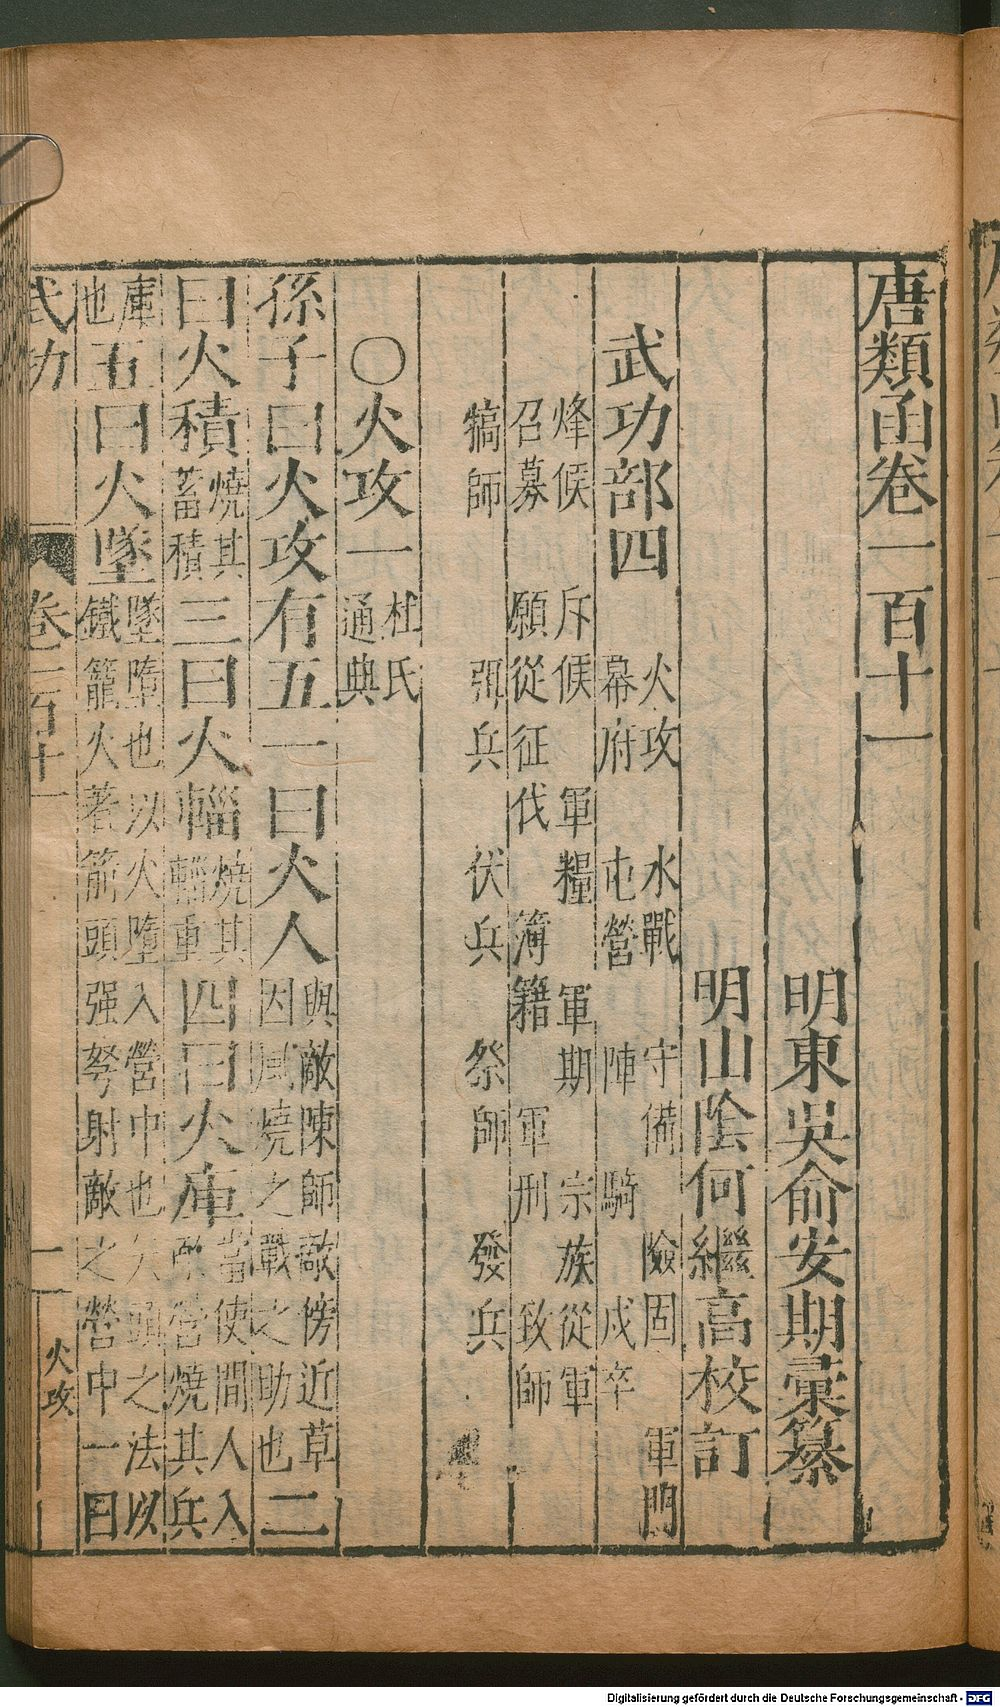 唐類函卷一百十一
明東吳俞安期彙纂
明山陰何繼高校訂
武功部四
火攻 水戰 守備 險固 軍門
幕府 屯營 陣 騎 戍卒
烽候 斥候 軍糧 軍期 宗族從軍
召募 願從征伐 簿籍 軍刑 致師
犒師 弭兵 伏兵 祭師 發兵
○火攻一 杜氏通典
孫子曰火攻有五一曰火人 與敵陳師敵傍近草因風燒之戰之助也 二
曰火積 燒其蓄積 三曰火輜 燒其輜重 四曰火庫 當使間人入敵營燒其兵
庫也 五曰火墜 墜墮也以火墮入營中也矢頭之法以鐵籠火著箭頭强弩射敵之營中一曰
武功
卷一百十一
一
火攻
Digitalisierung gefördert durch die Deutsche Forschungsgemeinschaft - DFG